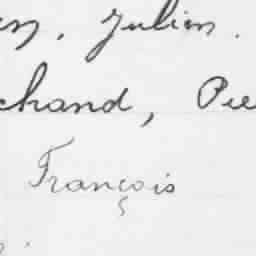 Julien.
chand, Pie
François